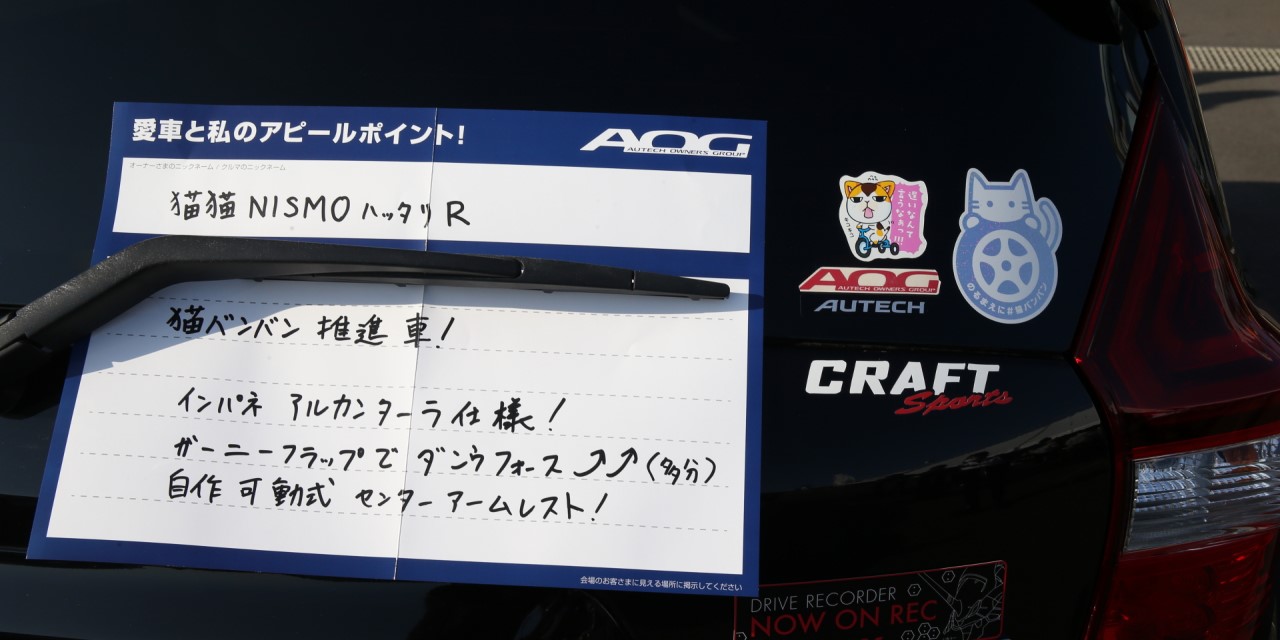 愛車と私のアピールポイント!
AOG
AUTECH OWNERS GROUP
オーナーさまのニックネーム / クルマのニックネーム
猫猫 NISMO ハッタリ R
猫バンバン 推進車!
インパネ アルカンターラ仕様!
ガーニーフラップで ダウンフォース⤴⤴(多分)
自作 可動式 センターアームレスト!
会場のお客さまに見える場所に掲示してください
遅いなんて
言うなぁっ!!!
AOG
AUTECH OWNERS GROUP
AUTECH
のるまえに#猫バンバン
CRAFT
Sports
DRIVE RECORDER
NOW ON REC